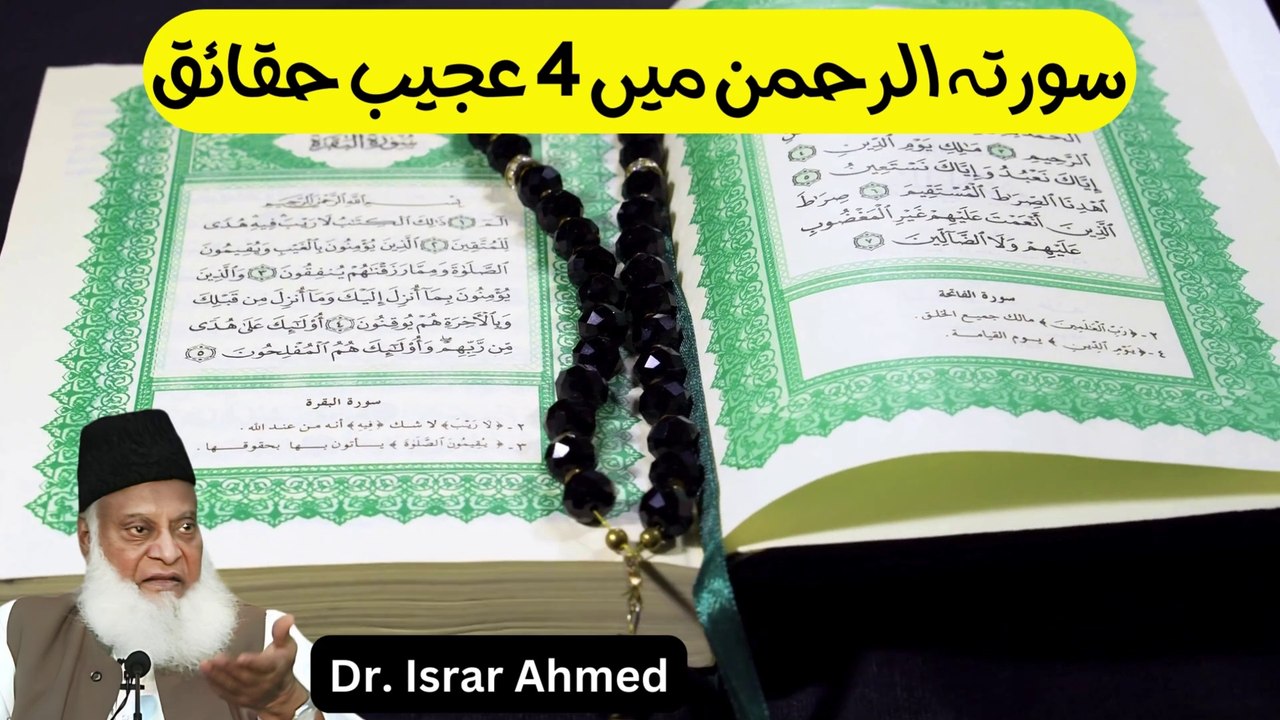 سورتہ الرحمن میں 4 عجیب حقائق
سُورَةُ البَقَرَةِ
بِسْمِ اللَّهِ الرَّحْمَٰنِ الرَّحِيمِ
الٓمٓ ١ ذَٰلِكَ ٱلْكِتَٰبُ لَا رَيْبَ فِيهِ هُدًى
لِّلْمُتَّقِينَ ٢ ٱلَّذِينَ يُؤْمِنُونَ بِٱلْغَيْبِ وَيُقِيمُونَ
ٱلصَّلَوٰةَ وَمِمَّا رَزَقْنَٰهُمْ يُنفِقُونَ ٣ وَٱلَّذِينَ
يُؤْمِنُونَ بِمَآ أُنزِلَ إِلَيْكَ وَمَآ أُنزِلَ مِن قَبْلِكَ
وَبِٱلْأَخِرَةِ هُمْ يُوقِنُونَ ٤ أُوْلَٰٓئِكَ عَلَىٰ هُدًى
مِّن رَّبِّهِمْ وَأُوْلَٰٓئِكَ هُمُ ٱلْمُفْلِحُونَ ٥
سورة البقرة
٢ـ ﴿لَا رَيْبَ﴾ لا شك ﴿فِيهِ﴾ أنه من عند الله .
٣ـ ﴿يُقِيمُونَ ٱلصَّلَوٰةَ﴾ يـأتون بـها بحقوقـها .
ٱلرَّحِيمِ ٣ مَٰلِكِ يَوْمِ ٱلدِّينِ ٤
إِيَّاكَ نَعْبُدُ وَإِيَّاكَ نَسْتَعِينُ ٥
ٱهْدِنَا ٱلصِّرَٰطَ ٱلْمُسْتَقِيمَ ٦ صِرَٰطَ
ٱلَّذِينَ أَنْعَمْتَ عَلَيْهِمْ غَيْرِ ٱلْمَغْضُوبِ
عَلَيْهِمْ وَلَا ٱلضَّآلِّينَ ٧
سورة الفاتحة
٢ـ ﴿رَبِّ ٱلْعَٰلَمِينَ﴾ مالك جميع الخلق .
٤ـ ﴿يَوْمِ ٱلدِّينِ﴾ يـوم القيامـة .
Dr. Israr Ahmed